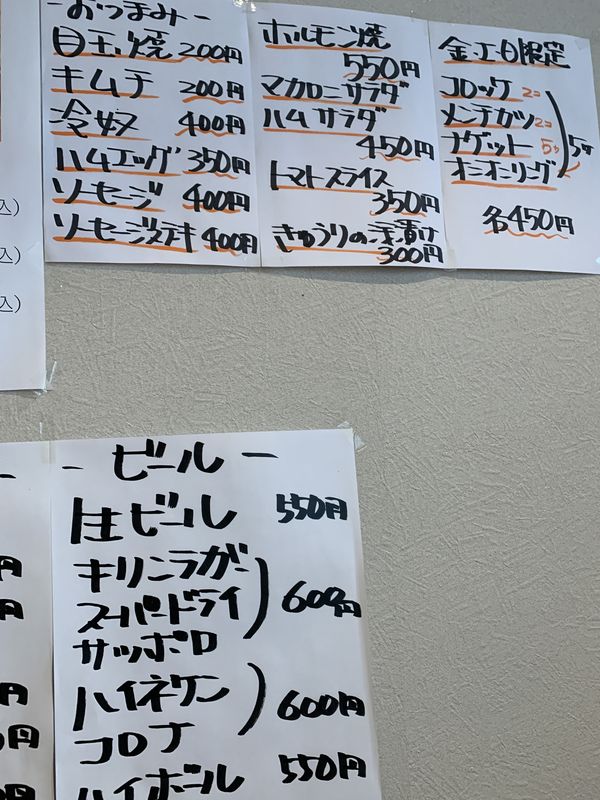 -おつまみ-
目玉焼 200円
キムチ 200円
冷奴 400円
ハムエッグ 350円
ソーセージ 400円
ソーセージステキ 400円
ホルモン焼
550円
マカロニサラダ
ハムサラダ
450円
トマトスライス
350円
きゅうりの浅漬け
300円
金土日限定
コロッケ 2コ
メンチカツ 2コ
ナゲット 5ケ
オニオンリング 5ケ
各450円
- ビール -
生ビール 550円
キリンラガー
スーパードライ 600円
サッポロ
ハイネケン
コロナ 600円
ハイボール 550円
込)
込)
込)
円
円
円
円
円